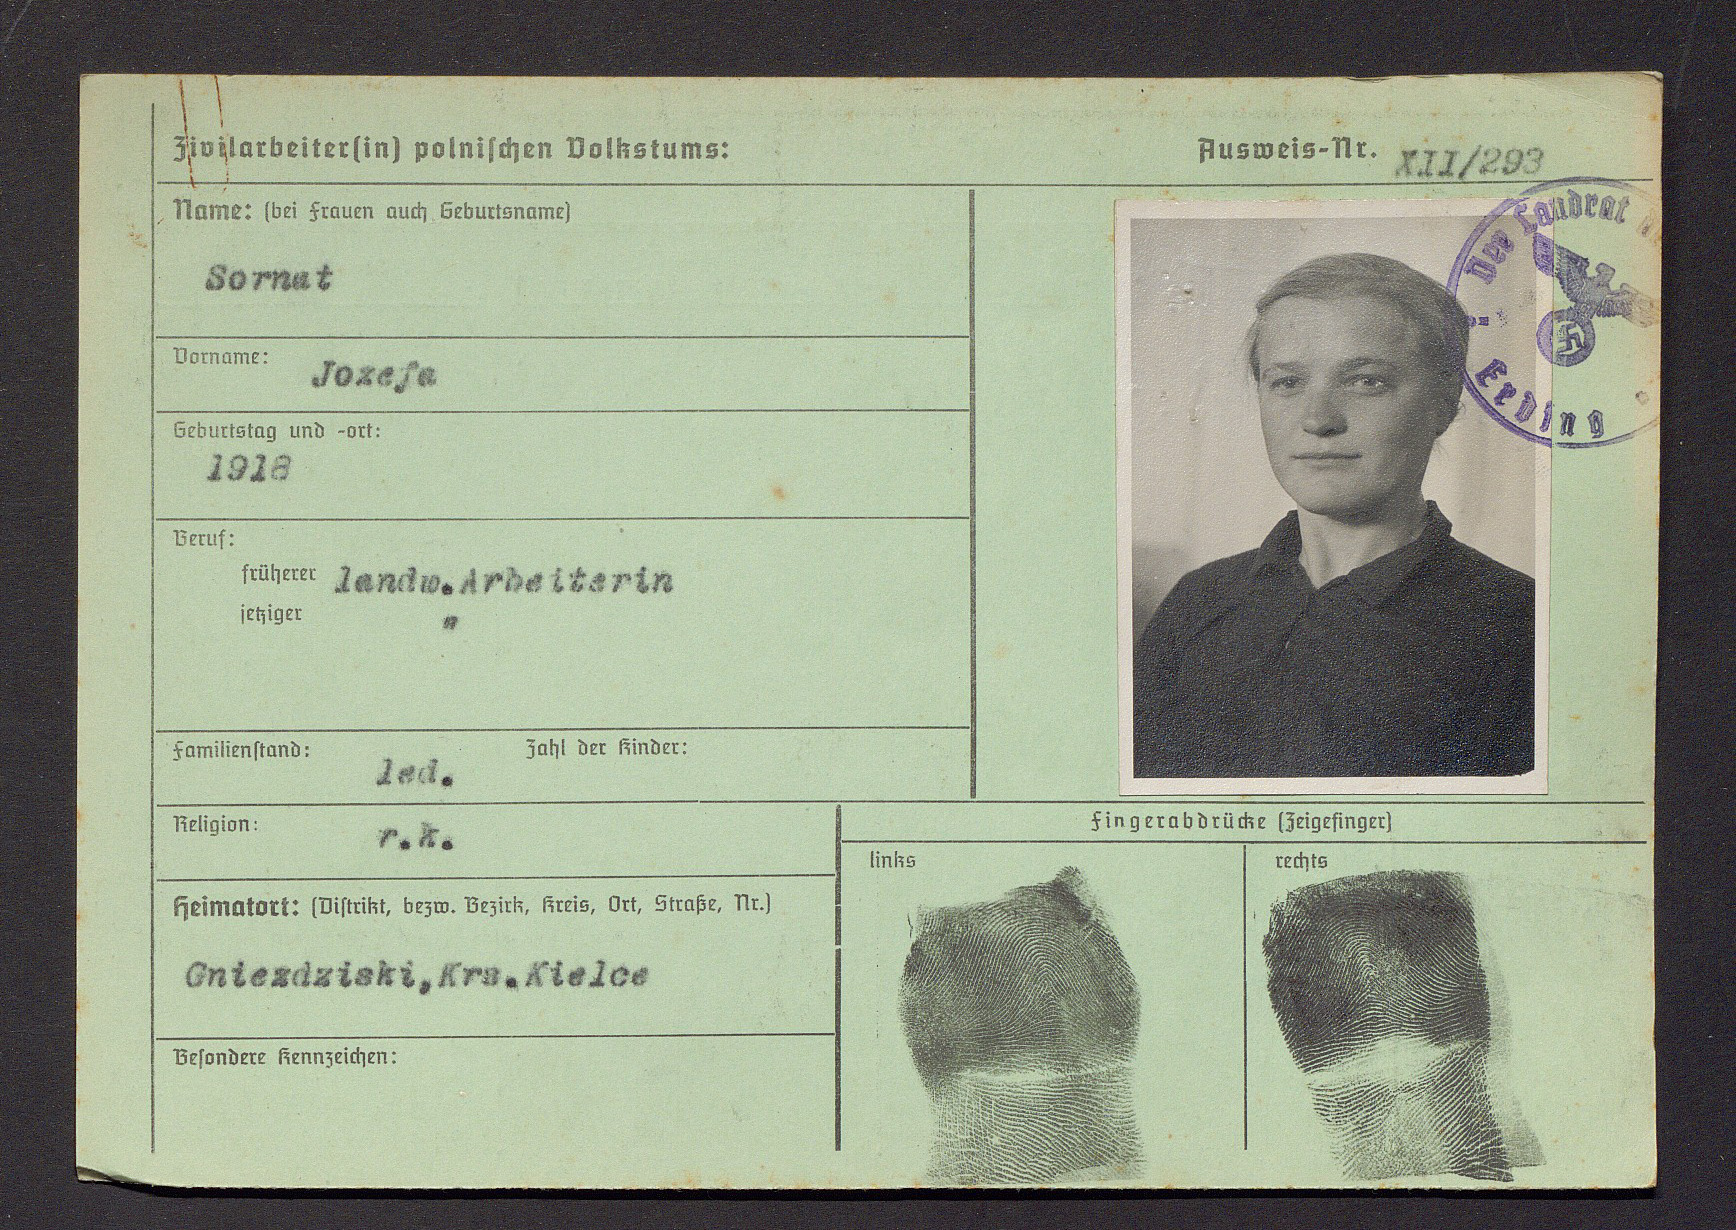 Zivilarbeiter(in) polnischen Volkstums:
Ausweis-Nr. XII/293
Name: (bei Frauen auch Geburtsname)
Sornat
Vorname: Jozefa
Geburtstag und -ort:
1918
Beruf:
früherer landw.Arbeiterin
jetziger "
Familienstand: led. Zahl der Kinder:
Religion: r.k.
Heimatort: (Distrikt, bezw. Bezirk, Kreis, Ort, Straße, Nr.)
Gniezdziski,Krs.Kielce
Besondere Kennzeichen:
Der Landrat
Erding
Fingerabdrücke (Zeigefinger)
links
rechts